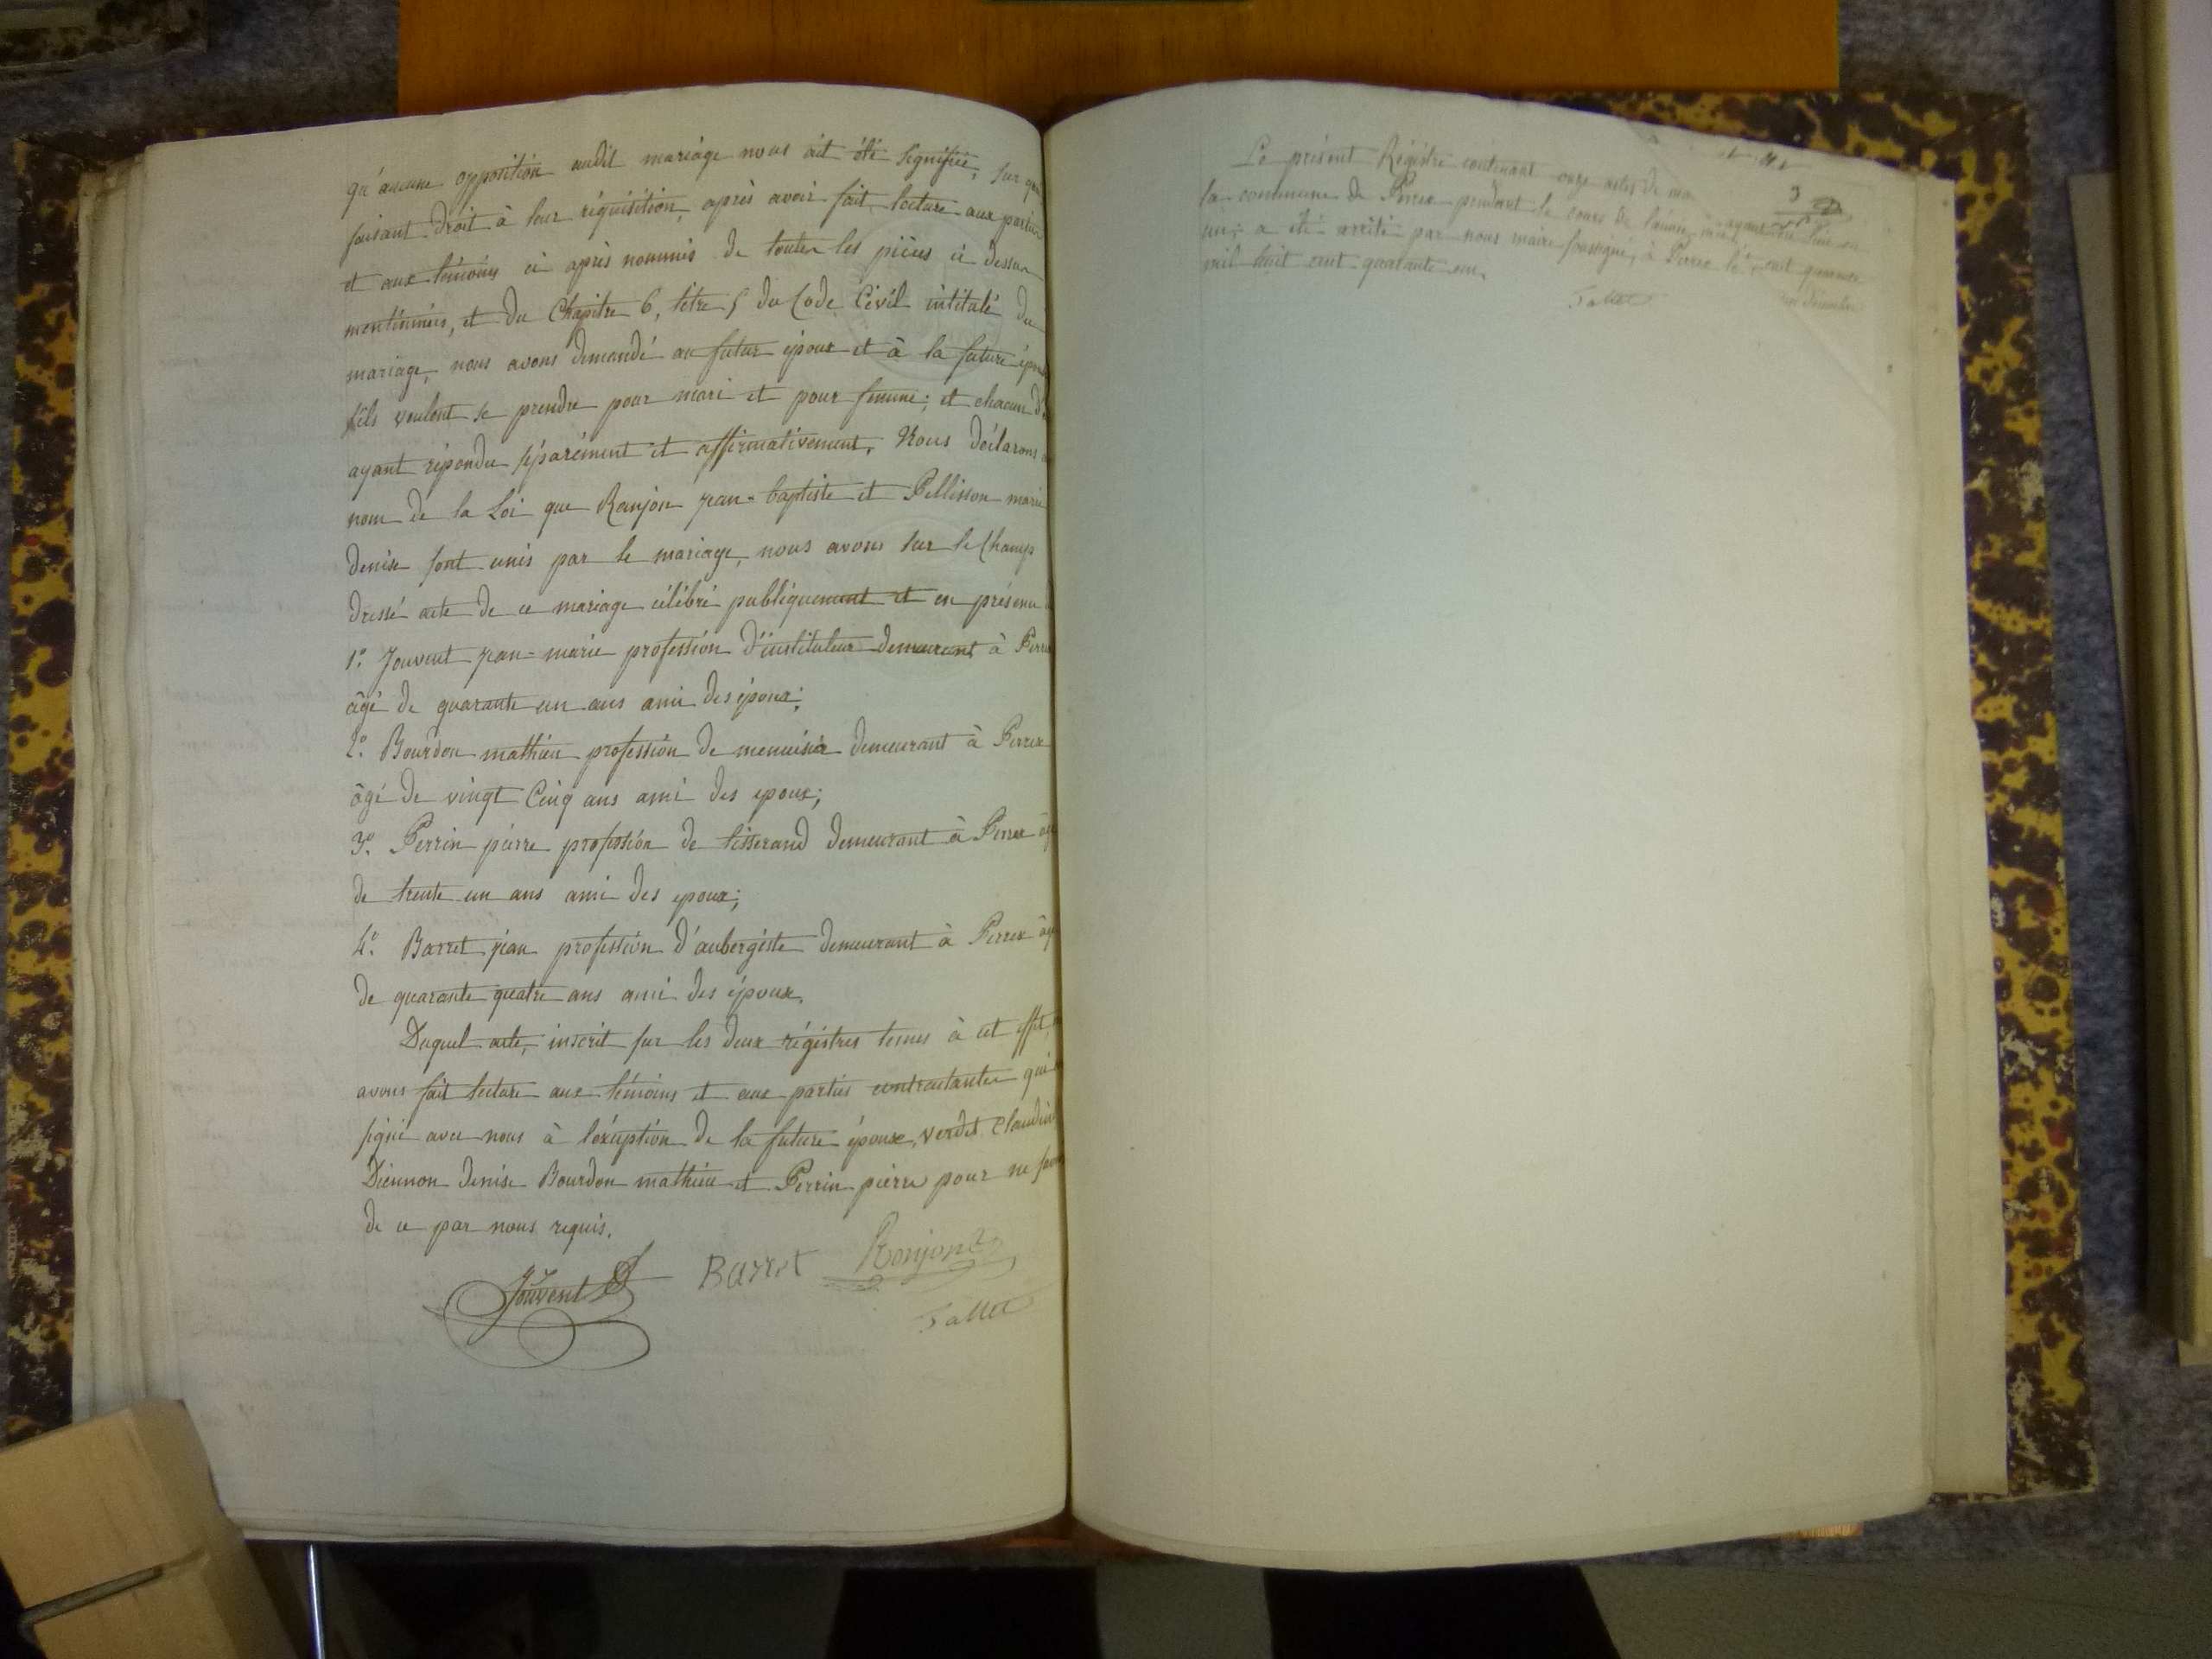 qu'aucune opposition audit mariage nous ait été signifiée, sur quoi
faisant droit à leur réquisition, après avoir fait lecture aux parties
et aux témoins ci après nommés de toutes les pièces ci dessus
mentionnées, et du Chapitre 6, titre 5 du Code Civil intitulé du
mariage, nous avons demandé au futur époux et à la future épouse
s'ils veulent se prendre pour mari et pour femme; et chacun d'
ayant répondu séparément et affirmativement, Nous déclarons
nom de la Loi que Ronjon jean-baptiste et Pellisson marie
denise sont unis par le mariage, nous avons sur le Champ
dressé acte de ce mariage célébré publiquement et en présence
1.° Jouvent jean-marie profession d'instituteur demeurant à Perrex
âgé de quarante un ans ami des époux;
2.° Bourdon mathieu profession de menuisier demeurant à Perrex
âgé de vingt Cinq ans ami des epoux;
3.° Perrin pierre profession de tisserand demeurant à Perrex âgé
de trente un ans ami des epoux;
4.° Barret jean profession d'aubergiste demeurant à Perrex âgé
de quarante quatre ans ami des époux.
Duquel acte, inscrit sur les deux régistres tenus à cet effet,
avons fait lecture aux témoins et aux parties contractantes qui
signé avec nous à l'exéption de la future épouse, verdet Claudine
Diennon denise Bourdon mathieu et Perrin pierre pour ne savoir
de ce par nous requis.
Jouvent Barret Ronjon
Tallet
3
Le présent Régistre contenant onze actes de
la commune de Perrex pendant le cours de l'année ayant eu lieu en
un, a été arrêté par nous maire soussigné, à Perrex le
mil huit cent quarante un.
Tallet